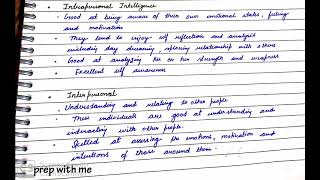 • Intrapersonal Intelligence
• Good at being aware of their own emotional states, feeling
and motivation
• They tend to enjoy self reflection and analysis
including day dreaming, exploring relationship with others
• Good at analyzing his on his strength and weakness
• Excellent self awareness
• Interpersonal
• Understanding and relating to other people
• These individuals are good at understanding and
interacting with other people.
• Skilled at assessing the emotions, motivation and
intentions of those around them.
prep with me